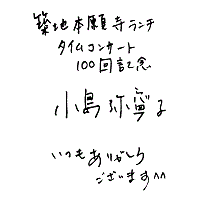 築地本願寺ランチ
タイムコンサート
100回記念
小島弥寧子
いつもありがとう
ございます^^